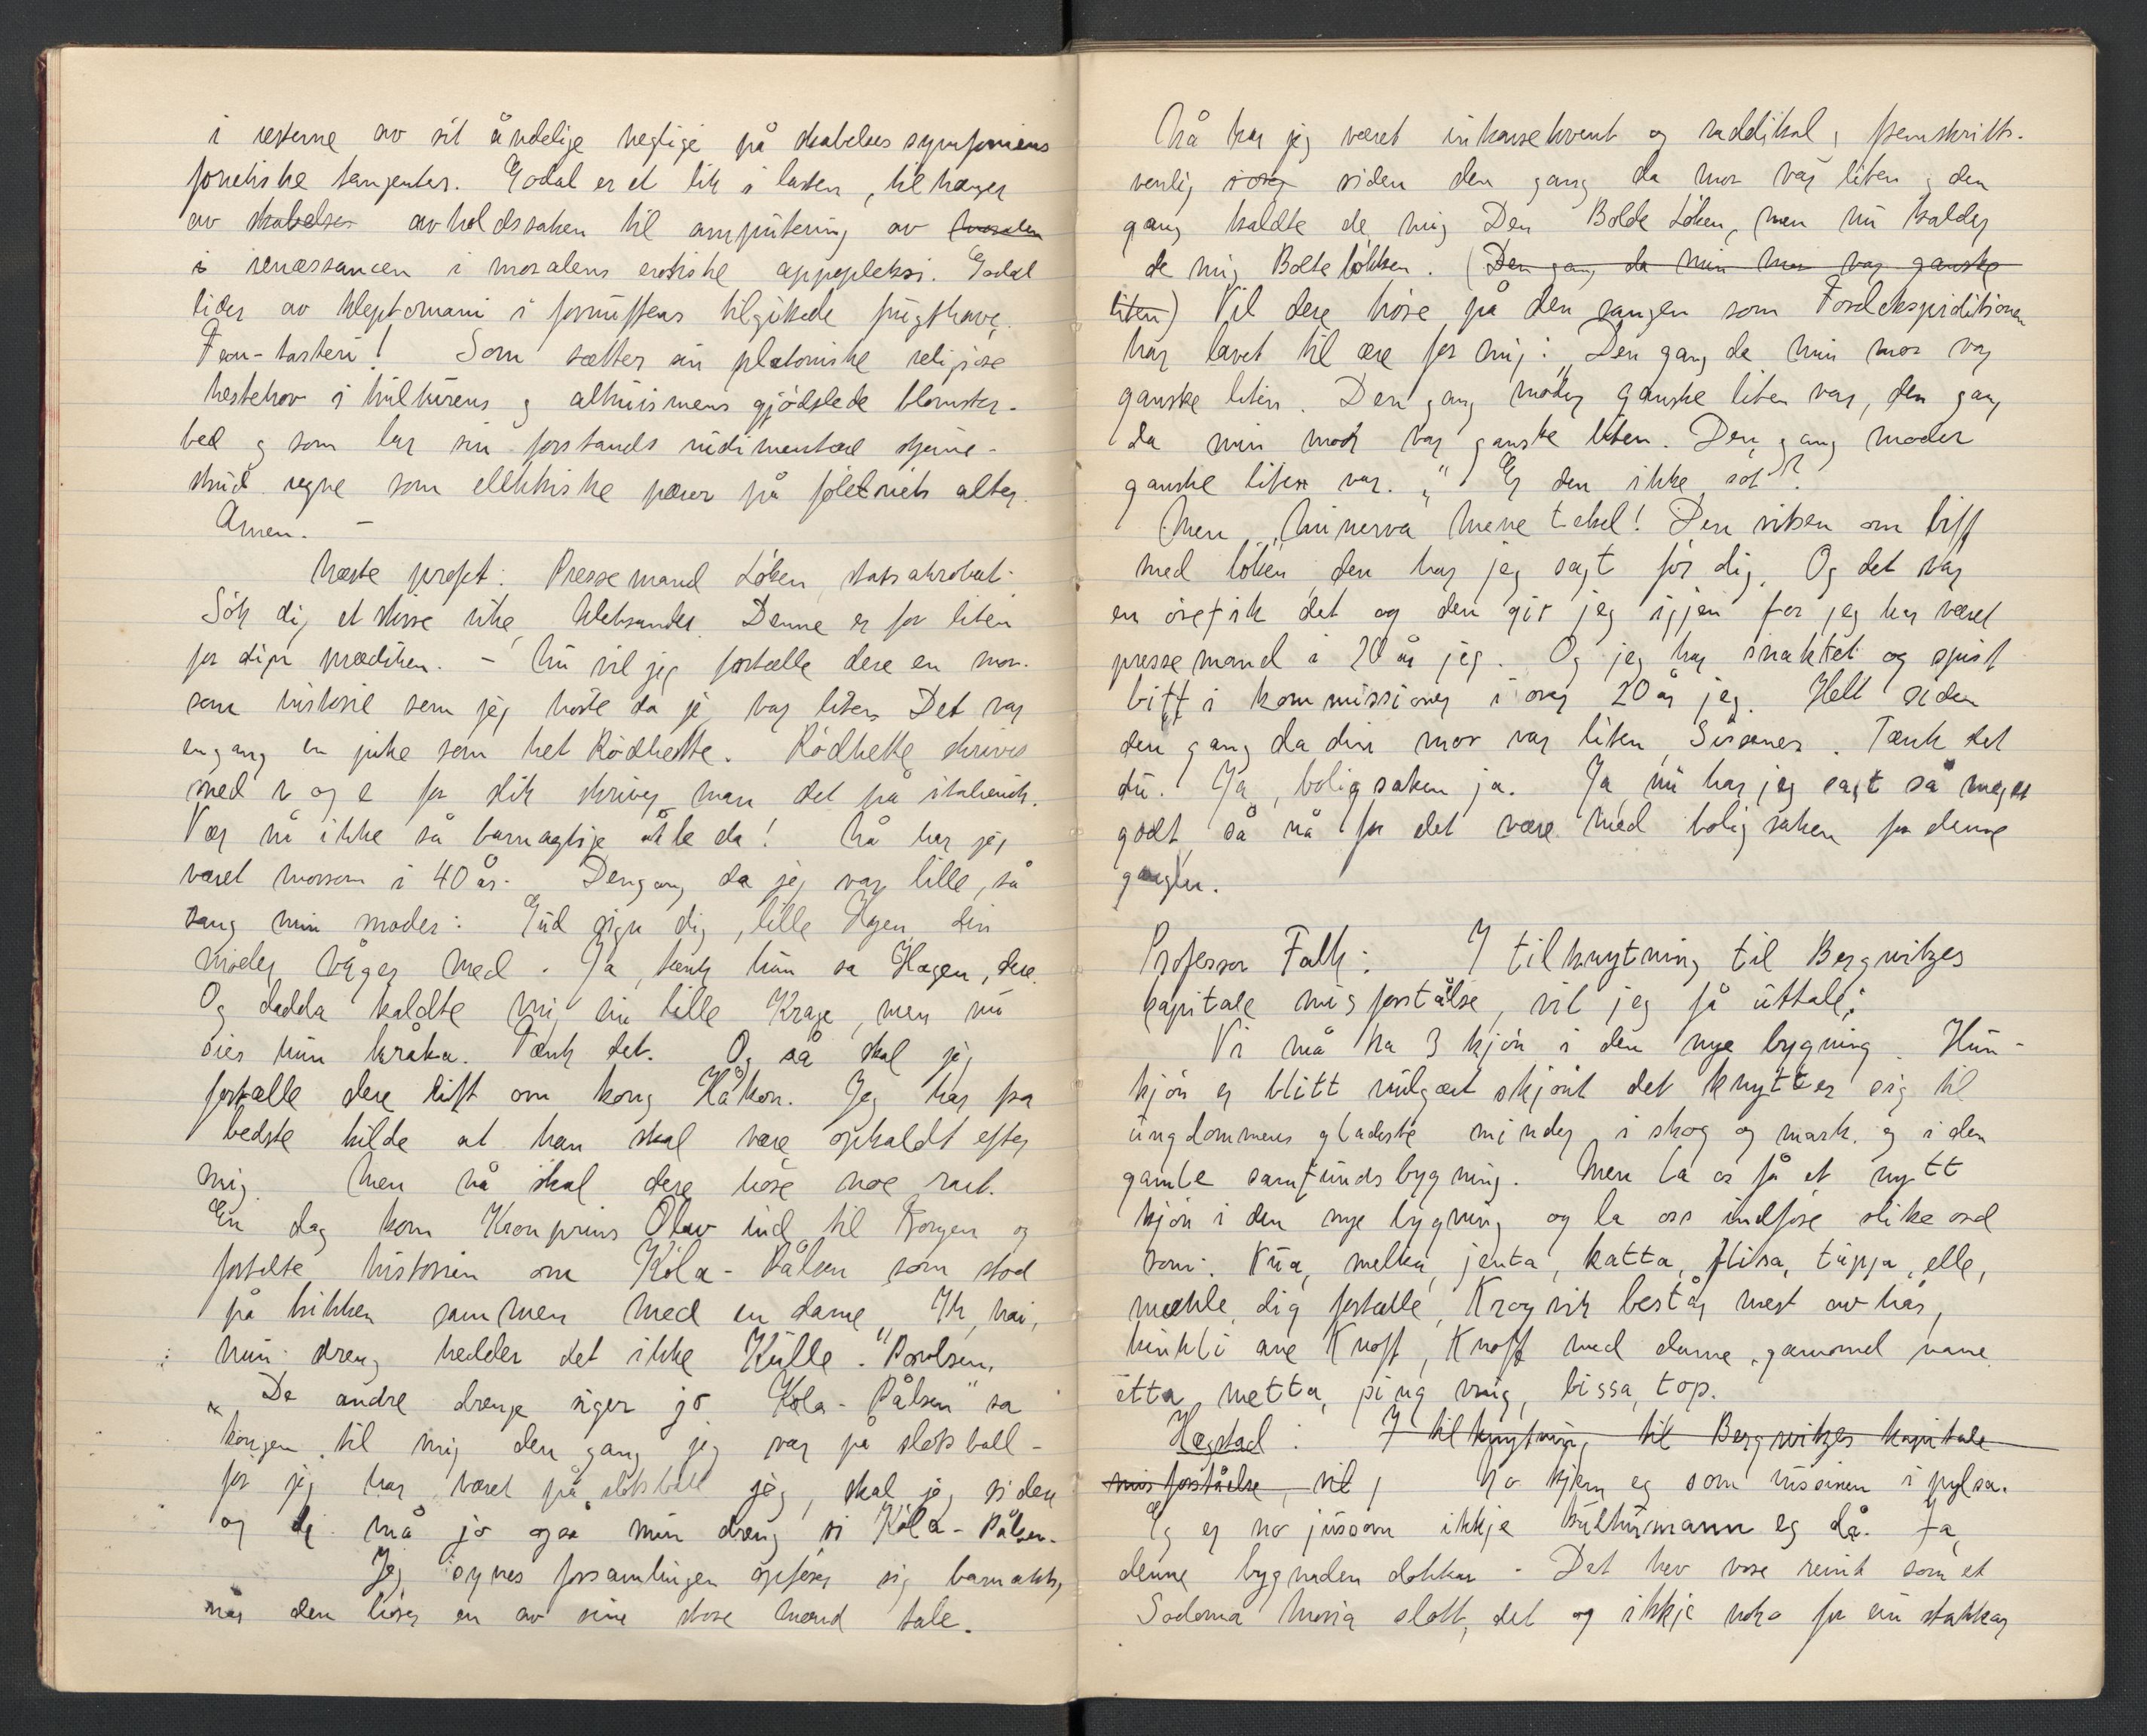 i resterne av sit åndelige negligé på skabelsessymfoniens
fonetiske tangenter. Godal er et lik i lasten, tilhænger
av skabelses avholdssaken til amputering av moralen
i renæssancen i moralens erotiske appopleksi. Godal
lider av kleptomani i fornuftens tilgikede frugthave.
som sætter sin platoniske religiøse
hestehov i kulturens og altruismens gjødslede blomster-
bed og som lar sin forstands rudimentære stjerne-
skud regne som elektriske pærer på føleriets alter.
Amen. –
Næste profet: Pressemand Løken, statsakrobat.
Søk dig et større rike, Aleksander. Denne er for liten
for dign prædiken. – Nu vil jeg fortælle dere en mor-
som historie som jeg hørte da je var liten. Det var
engang en pike som het Rødhette. Rødhette skrives
med r og e for slik skriver man det på italiensk.
Vær nå ikke så barnagtige alle da! Nå har jeg
været morsom i 40 år. Dengang da jeg var lille, så
sang min moder: Gud signe dig, lille Hgen, din
moder våger med. Ja, tænk hun sa Hagen, dere.
Og dadda kaldte mig sin lille Krage, men nu
sier hun kråka. Tænk det. Og så skal jeg
fortælle dere litt om kong Håkon. Jeg har fra
bedste kilde at han skal være opkaldt efter
mig. Men nå skal dere høre noe rart.
En dag kom Kronprins Olav ind til Kongen og
fortalte historien om Kola-Pålsen som stod
på kikken sammen med en dame. "Ih, nai,
min dreng hedder det ikke Kulle-Poulsen."
"De andre drenge siger jo Kola-Pålsen" sa
kongen til mig den gang jeg var på slotsball –
for jeg har været på slotsball jeg, skal jeg si dere
og de må jo også min dreng si Kola-Pålsen.
Jeg synes forsamlingen opfører sig barnakti,
når den hører en av sine store mænd tale.
Nå har jeg været inkonsekvent og raddikal, fremskritts-
venlig i over siden den gang da mor var liten, den
gang kaldte de mig Den Bolde Løken, men nu kalder
de mig Bolteløkken. (Den gang da min mor var ganske
liten) Vil dere høre på den sangen som Fordekspiditionen
har lavet til ære for mig: "Den gang da min mor var
ganske liten. Den gang moder ganske liten var, den gang
da min mor var ganske liten. Den gang moder
ganske liten var." Er den ikke søt?
Men, Minerva mene tekel! Den vitsen om biff
med løken, den har jeg sagt før dig. Og det var
en ørefik det og den gir jeg igjen for jeg har været
pressemand i 20 år jeg. Og jeg har snakket og spist
biff i kommissioner i over 20 år jeg. Helt siden
den gang da din mor var liten, Sissener. Tænk det
du. Ja, boligsaken ja. Ja nu har jeg sagt så meget
godt så nå får det være med boligsaken for denne
gangen.
Professor Falk: I tilknytning til Bergwitzes
kapitale misforståelse, vil jeg få uttale:
Vi må ha 3 kjøn i den nye bygning. Hun-
kjøn er blitt vulgært skjønt det knytter sig til
ungdommens gladeste minder i skog og mark og i den
gamle samfundsbygning. Men la os få et nytt
kjøn i den nye bygning og la oss indføre slike ord
som: Kua, melka, jenta, katta, flissa, tuppa, elle,
mælle, dig fortælle, Krogvik består mest av hår,
Knoff, Knoff med denne gammel name
etta, metta, ping vrig, bissa, top.
Hægstad: I tilknytning til Bergwitzes kapitale
misforståelse, vil j No kjem eg som russinen i pylsa.
Eg er no jussom ikkje kulturmann eg då. Ja,
denne bygnaden dokkar. Det hev vore reint som et
Sodoma Moria slott, det og ikkje noko for ein stakkar